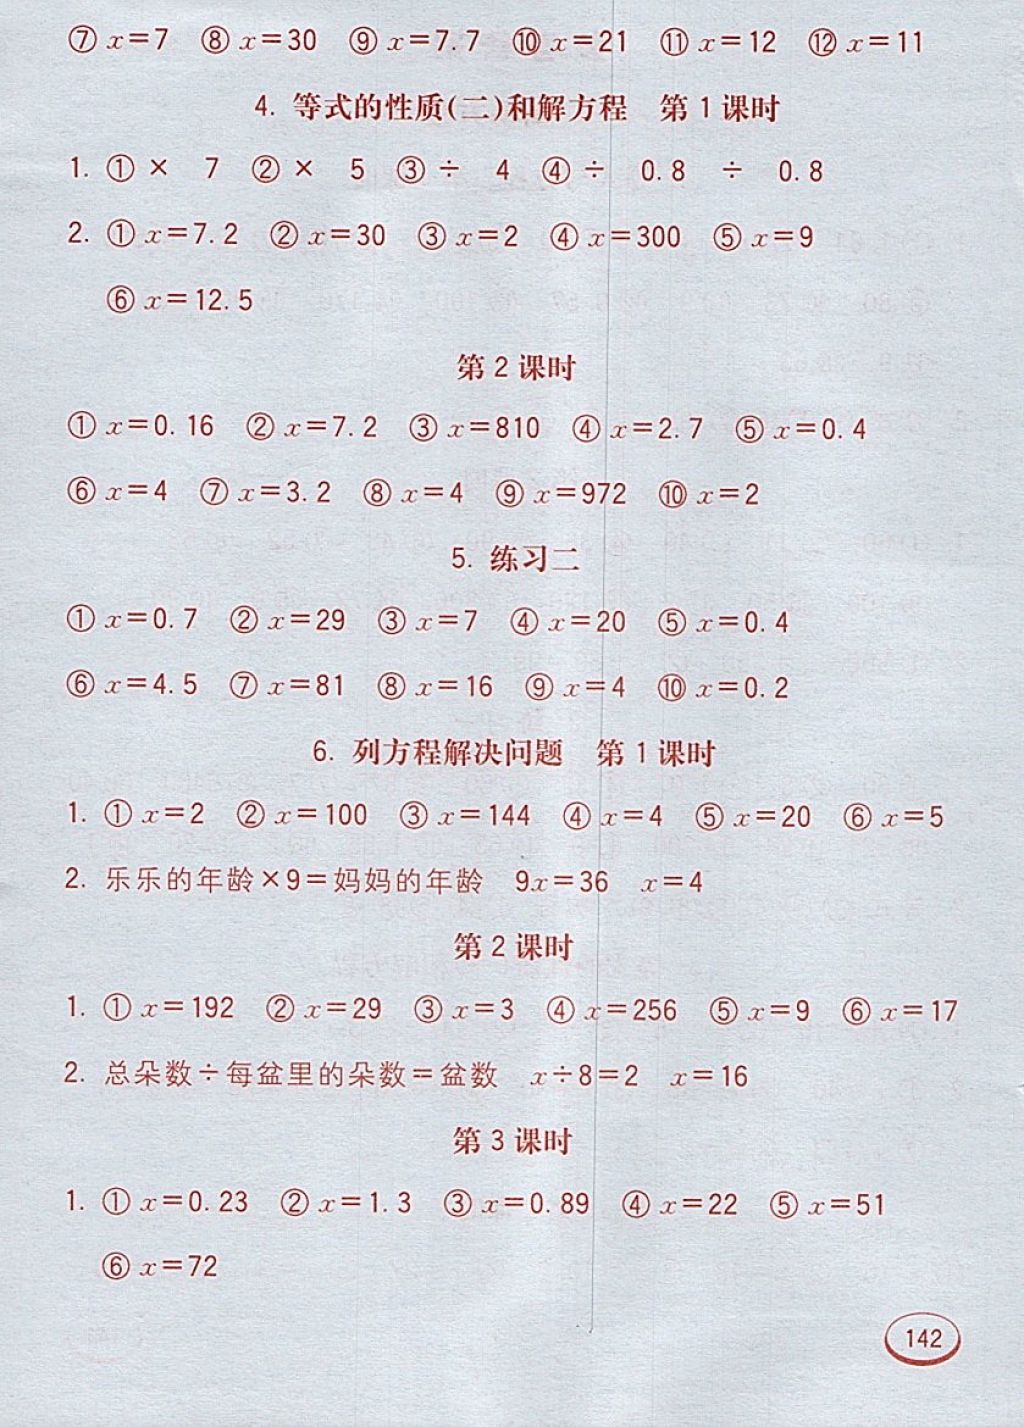 ⑦ x=7 ⑧ x=30 ⑨ x=7.7 ⑩ x=21 ⑪ x=12 ⑫ x=11
4. 等式的性质(二)和解方程 第1课时
1. ① × 7 ② × 5 ③ ÷ 4 ④ ÷ 0.8 ÷ 0.8
2. ① x=7.2 ② x=30 ③ x=2 ④ x=300 ⑤ x=9
⑥ x=12.5
第2课时
① x=0.16 ② x=7.2 ③ x=810 ④ x=2.7 ⑤ x=0.4
⑥ x=4 ⑦ x=3.2 ⑧ x=4 ⑨ x=972 ⑩ x=2
5. 练习二
① x=0.7 ② x=29 ③ x=7 ④ x=20 ⑤ x=0.4
⑥ x=4.5 ⑦ x=81 ⑧ x=16 ⑨ x=4 ⑩ x=0.2
6. 列方程解决问题 第1课时
1. ① x=2 ② x=100 ③ x=144 ④ x=4 ⑤ x=20 ⑥ x=5
2. 乐乐的年龄×9=妈妈的年龄 9x=36 x=4
第2课时
1. ① x=192 ② x=29 ③ x=3 ④ x=256 ⑤ x=9 ⑥ x=17
2. 总朵数÷每盆里的朵数=盆数 x÷8=2 x=16
第3课时
1. ① x=0.23 ② x=1.3 ③ x=0.89 ④ x=22 ⑤ x=51
⑥ x=72
142